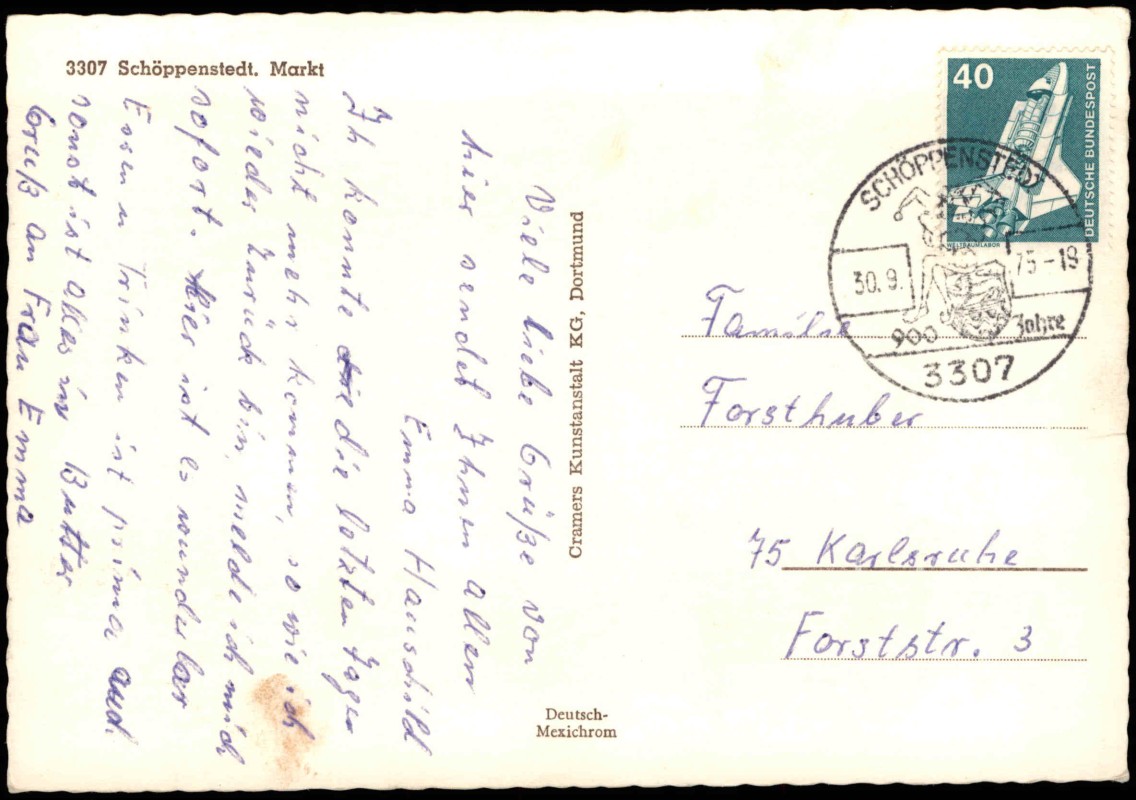 3307 Schöppenstedt. Markt
Viele liebe Grüße von
hier sendet Ihnen allen
Emma Hauschild
Ih konnte die die lotzten Tage
nicht mehr kommen, so wie ich
wieder zurück bin, melde ich mich
sofort. Hier ist es wunderbar
Essen u Trinken ist prima auch
sonst ist alles in Butter
Gruß an Frau Emma
Cramers Kunstanstalt KG, Dortmund
Deutsch-
Mexichrom
40
DEUTSCHE BUNDESPOST
WELTRAUMLABOR
SCHÖPPENSTEDT
30.9.75-18
900 Jahre
3307
Familie
Forsthuber
75 Karlsruhe
Forststr. 3